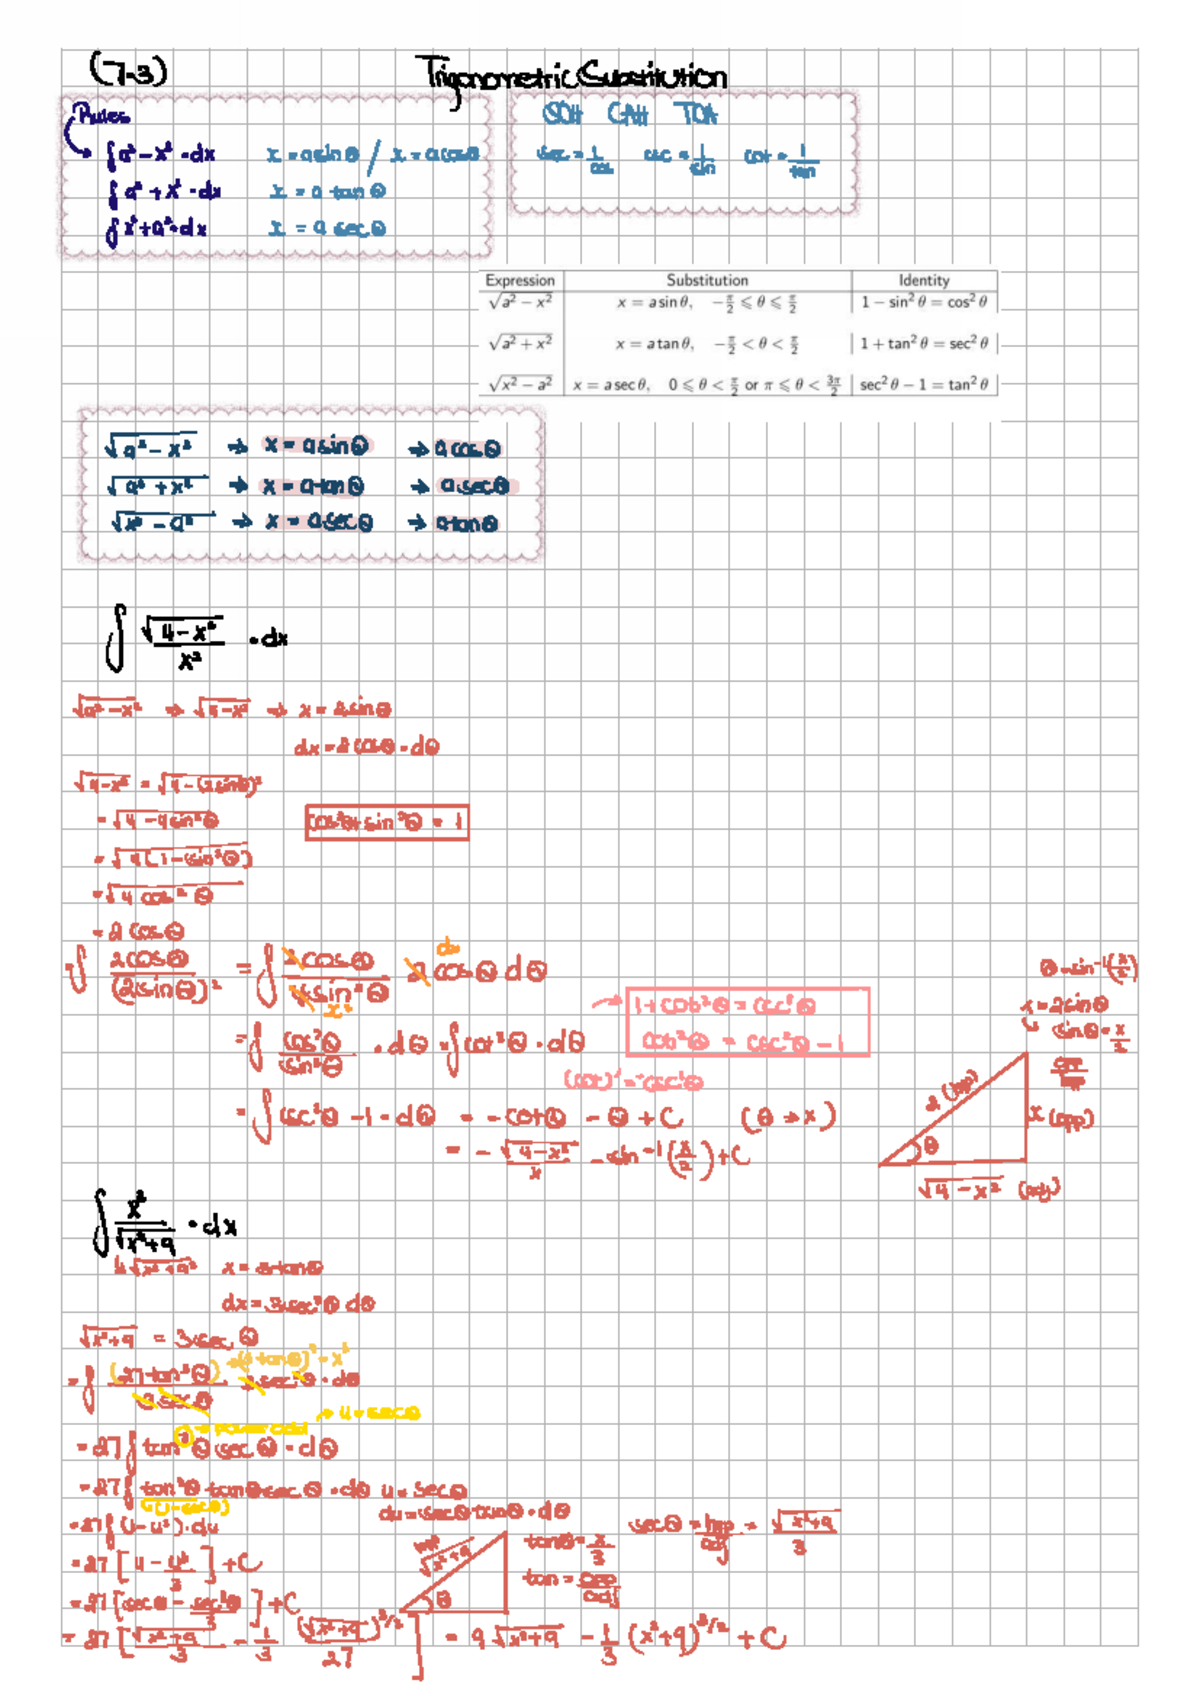 (7.3) Trigonometric Substitution
Rules
∫a²-x²·dx x = a sinθ / x = a cosθ
∫a²+x²·dx x = a tanθ
∫x²+a²·dx x = a secθ
SOH CAH TOA
sec = 1/cos csc = 1/sin cot = 1/tan
Expression Substitution Identity
√(a² − x²) x = a sin θ, −π/2 ⩽ θ ⩽ π/2 1 − sin² θ = cos² θ
√(a² + x²) x = a tan θ, −π/2 < θ < π/2 1 + tan² θ = sec² θ
√(x² − a²) x = a sec θ, 0 ⩽ θ < π/2 or π ⩽ θ < 3π/2 sec² θ − 1 = tan² θ
√(a²-x²) → x = a sinθ → a cosθ
√(a²+x²) → x = a tanθ → a secθ
√(x²-a²) → x = a secθ → a tanθ
∫ √(4-x²)/x² · dx
√(a²-x²) → √(4-x²) → x = 2 sinθ
dx = 2 cosθ · dθ
√(4-x²) = √(4-(2sinθ)²)
= √(4-4sin²θ) cos²θ+sin²θ = 1
= √(4(1-sin²θ))
= √(4cos²θ)
= 2cosθ
dx
= ∫ 2cosθ/(2sinθ)² = ∫ 2cosθ/4sin²θ 2cosθ dθ
x²
θ = sin⁻¹(x/2)
x = 2sinθ
sinθ = x/2
opp/hyp
1+cot²θ = csc²θ
cot²θ = csc²θ - 1
= ∫ cos²θ/sin²θ · dθ = ∫cot²θ · dθ
(cot)' = -csc²θ
2 (hyp)
x (opp)
θ
√(4-x²) (adj)
= ∫ csc²θ - 1 · dθ = -cotθ - θ + C (θ → x)
= -√(4-x²)/x - sin⁻¹(x/2) + C
∫ x³/√(x²+9) · dx
√(x²+9) x = 3tanθ
dx = 3sec²θ dθ
√(x²+9) = 3secθ
= ∫ (27tan³θ)/3secθ 3sec²θ · dθ
→(3tanθ)³ = x³
→ power odd → u = secθ
= 27∫tan³θ secθ · dθ
= 27∫tan²θ tanθ secθ · dθ u = secθ
(1-secθ) du = secθ tanθ · dθ
= 27∫(1-u²)·du
= 27[u - u³/3] + C
= 27[secθ - sec³θ/3] + C
hyp √(x²+9)
θ
tanθ = x/3
tan = opp/adj
secθ = hyp/adj = √(x²+9)/3
= 27[√(x²+9)/3 - 1/3 (√(x²+9))^3/2/27] = 9√(x²+9) - 1/3 (x²+9)^3/2 + C